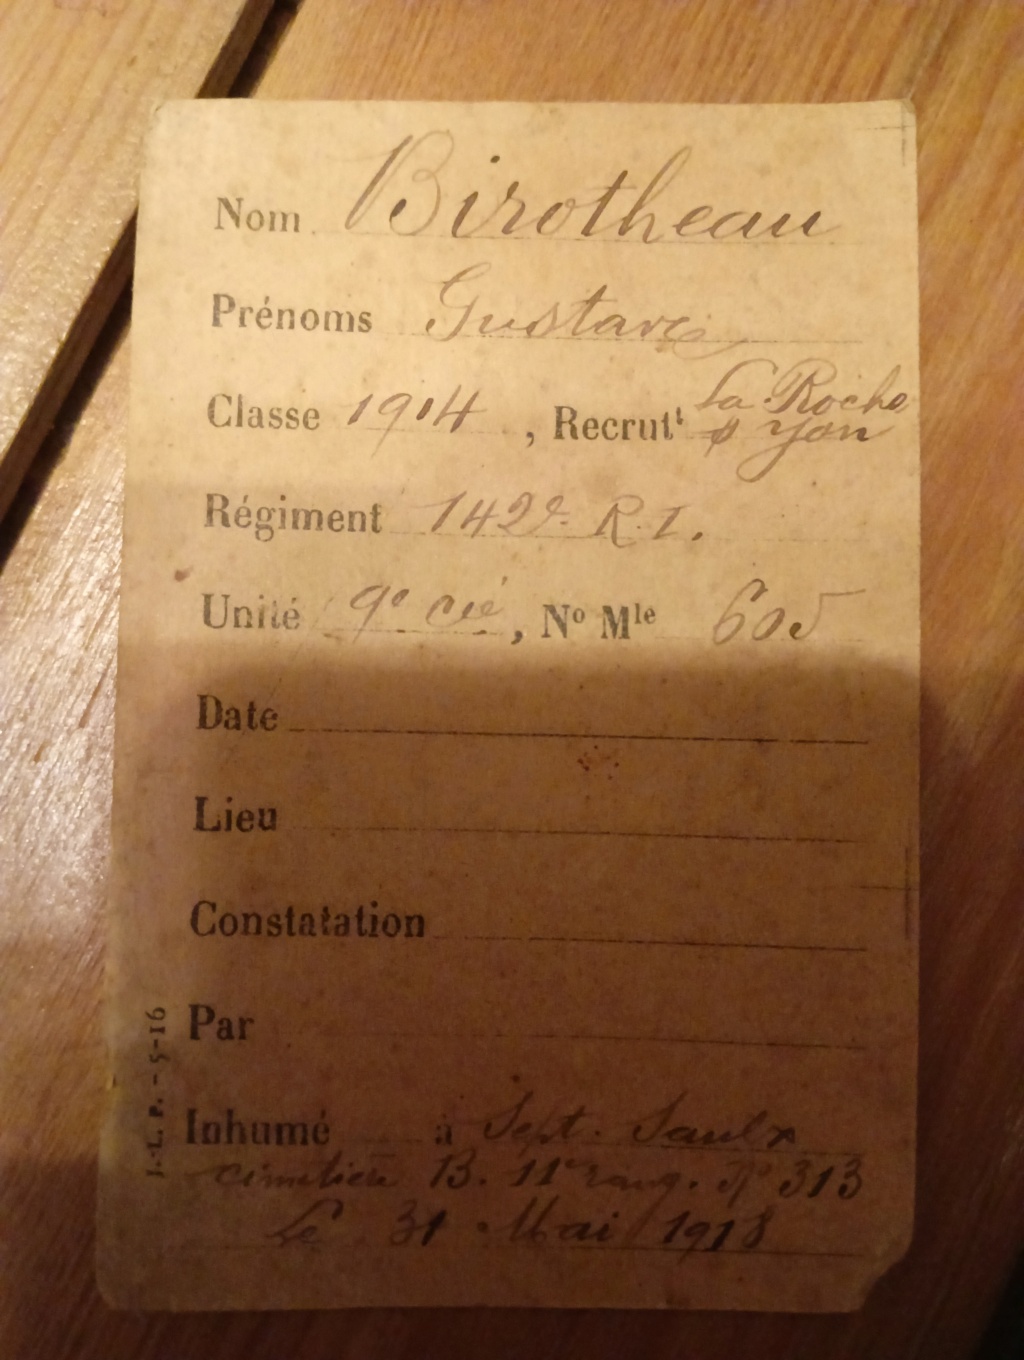 Nom Birotheau
Prénoms Gustave
Classe 1914, Recrutt La Roche
s Yon
Régiment 142e R.I.
Unité 9e cie, No Mle 605
Date
Lieu
Constatation
Par
Inhumé à Sept. Saulx
cimetière B. 11e rang. No 313
Le 31 Mai 1918
J.-L. P. - 5-16